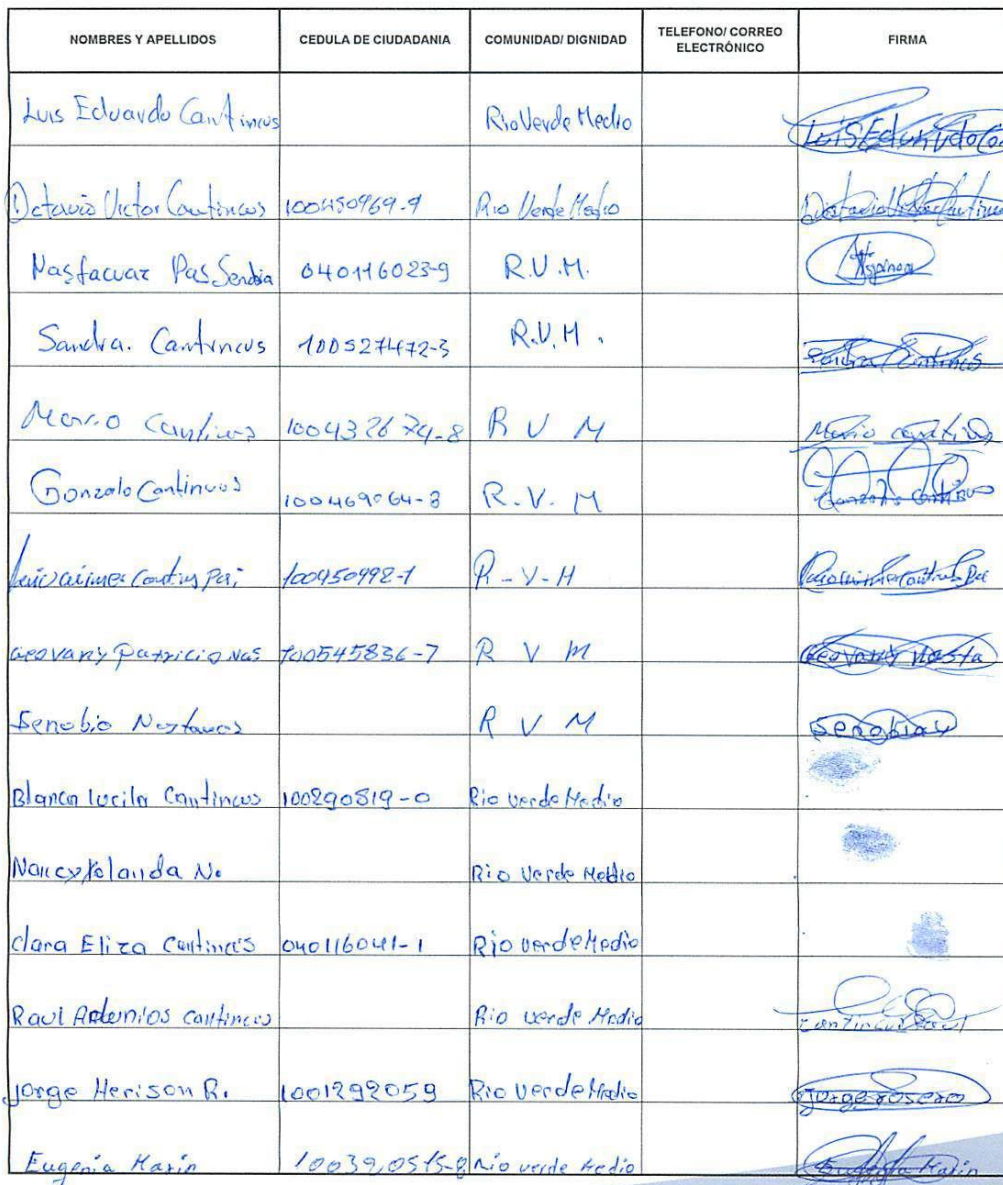 NOMBRES Y APELLIDOS CEDULA DE CIUDADANIA COMUNIDAD/ DIGNIDAD TELEFONO/ CORREO ELECTRÓNICO FIRMA
Luis Eduardo Cantincus Rio Verde Medio Luis Eduardo
Octavio Victor Cantincus 100450969-9 Rio Verde Medio
Nastacuaz Pas 040116023-9 R.V.M.
Sandra. Cantincus 100527472-3 R.V.M. Sandra Cantincus
Mario 100432674-8 R V M Mario
Gonzalo Cantincus 100469064-3 R.V.M Gonzalo
100450992-1 R-V-M
Geovany Patricio Nas 100545836-7 R V M Geovany Nasta
Senobio R V M Senobia
Blanca lucila Cantincus 100290819-0 Rio verde Medio
Nancy Yolanda N. Rio Verde Medio
Clara Eliza Cantincus 040116041-1 Rio verde Medio
Raul cantincus Rio verde Medio Cantincus Raul
Jorge Herison R. 1001292059 Rio verde Medio Jorge rosero
Eugenia Marin Rio verde Medio Eugenia Marin